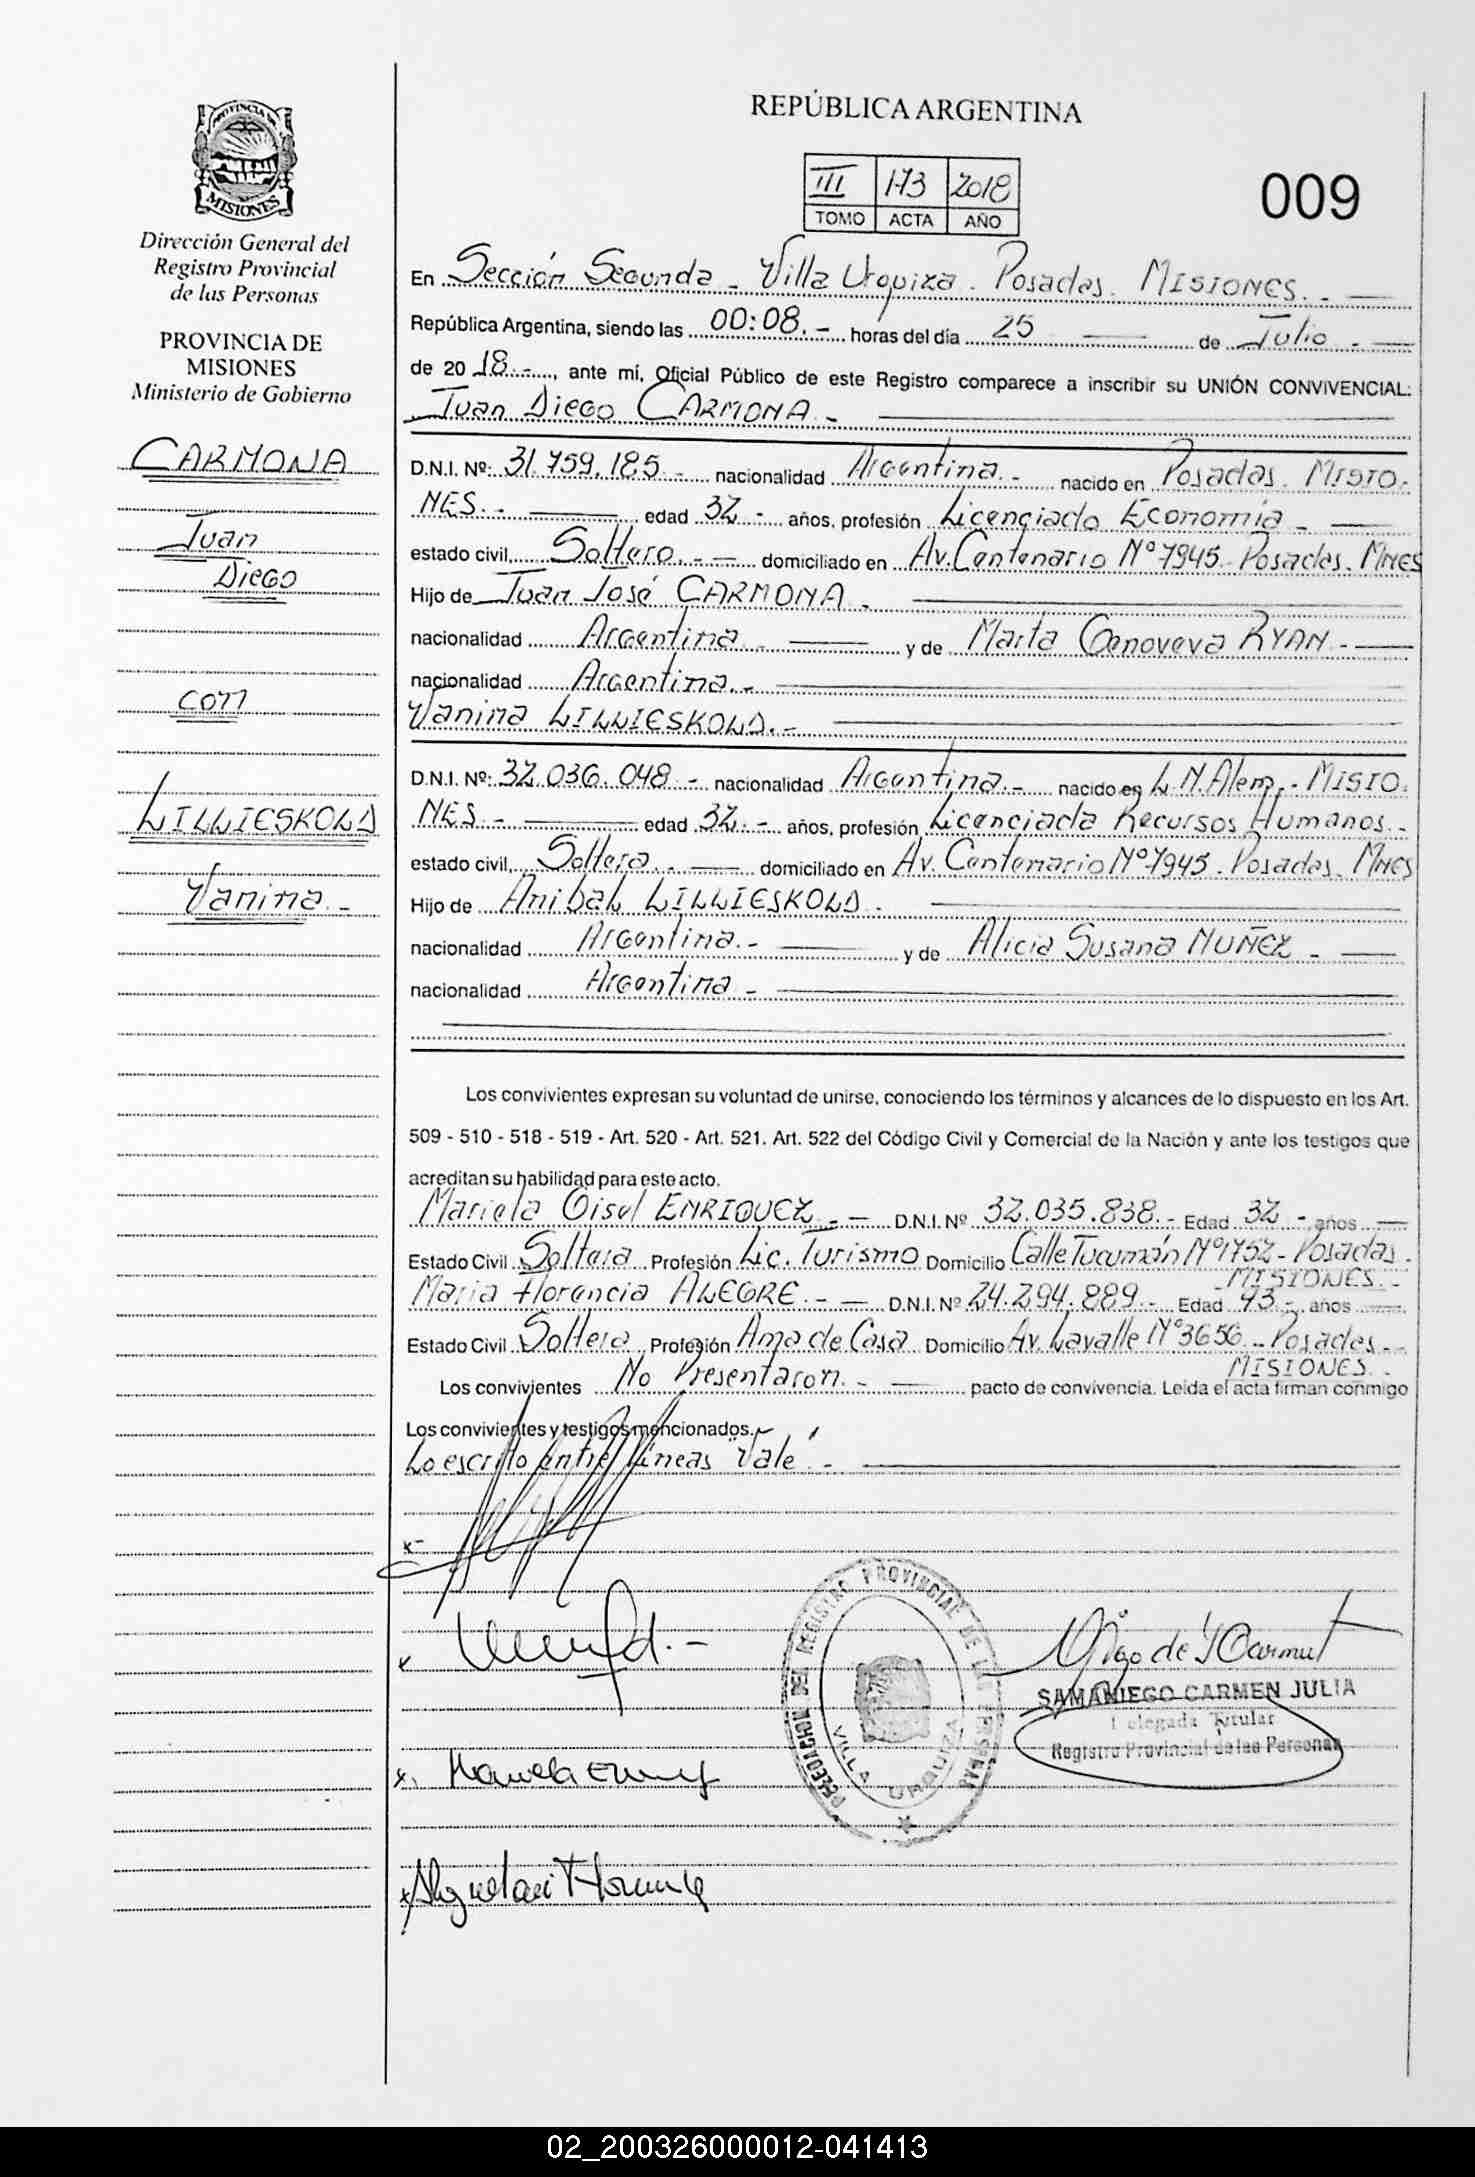 PROVINCIA DE
MISIONES
Dirección General del
Registro Provincial
de las Personas
PROVINCIA DE
MISIONES
Ministerio de Gobierno
CARMONA
Juan
Diego
con
LILLIESKOLD
Vanina.-
REPÚBLICA ARGENTINA
III 173 2018
TOMO ACTA AÑO
009
En Sección Segunda - Villa Urquiza. Posadas. MISIONES. -
República Argentina, siendo las 00:08.- horas del día 25 de Julio -
de 2018.-, ante mí, Oficial Público de este Registro comparece a inscribir su UNIÓN CONVIVENCIAL:
Juan Diego CARMONA -
D.N.I. Nº: 31.759.185.- nacionalidad Argentina.- nacido en Posadas. MISIO-
NES.- edad 32 - años, profesión Licenciado Economía -
estado civil, Soltero.- domiciliado en Av. Centenario Nº 7945. Posadas. Mnes
Hijo de Juan José CARMONA -
nacionalidad Argentina - y de Marta Genoveva RYAN.-
nacionalidad Argentina.-
Vanina LILLIESKOLD.-
D.N.I. Nº: 32.036.048 - nacionalidad Argentina.- nacido en L.N. Alem.- MISIO-
NES - edad 32.- años, profesión Licenciada Recursos Humanos.-
estado civil, Soltera.- domiciliado en Av. Centenario Nº 7945. Posadas. Mnes
Hijo de Anibal LILLIESKOLD -
nacionalidad Argentina.- y de Alicia Susana NUÑEZ -
nacionalidad Argentina -
Los convivientes expresan su voluntad de unirse, conociendo los términos y alcances de lo dispuesto en los Art.
509 - 510 - 518 - 519 - Art. 520 - Art. 521. Art. 522 del Código Civil y Comercial de la Nación y ante los testigos que
acreditan su habilidad para este acto.
Mariela Gisel ENRIQUEZ - D.N.I. Nº 32.035.838.- Edad 32 - años
Estado Civil Soltera Profesión Lic. Turismo Domicilio Calle Tucumán Nº 1752 - Posadas -
MISIONES.-
Maria Florencia ALEGRE.- D.N.I. Nº 24.294.889.- Edad 43 - años
Estado Civil Soltera Profesión Ama de Casa Domicilio Av. Lavalle Nº 3656 - Posadas -
MISIONES.-
Los convivientes No Presentaron.- pacto de convivencia. Leída el acta firman conmigo
Los convivientes y testigos mencionados.
Lo escrito entre líneas "Vale".-
x-
x
x. Mariela
x
DELEGACION DEL REGISTRO PROVINCIAL DE LAS PERSONAS
VILLA URQUIZA
SAMANIEGO CARMEN JULIA
Delegada Titular
Registro Provincial de las Personas
02_200326000012-041413